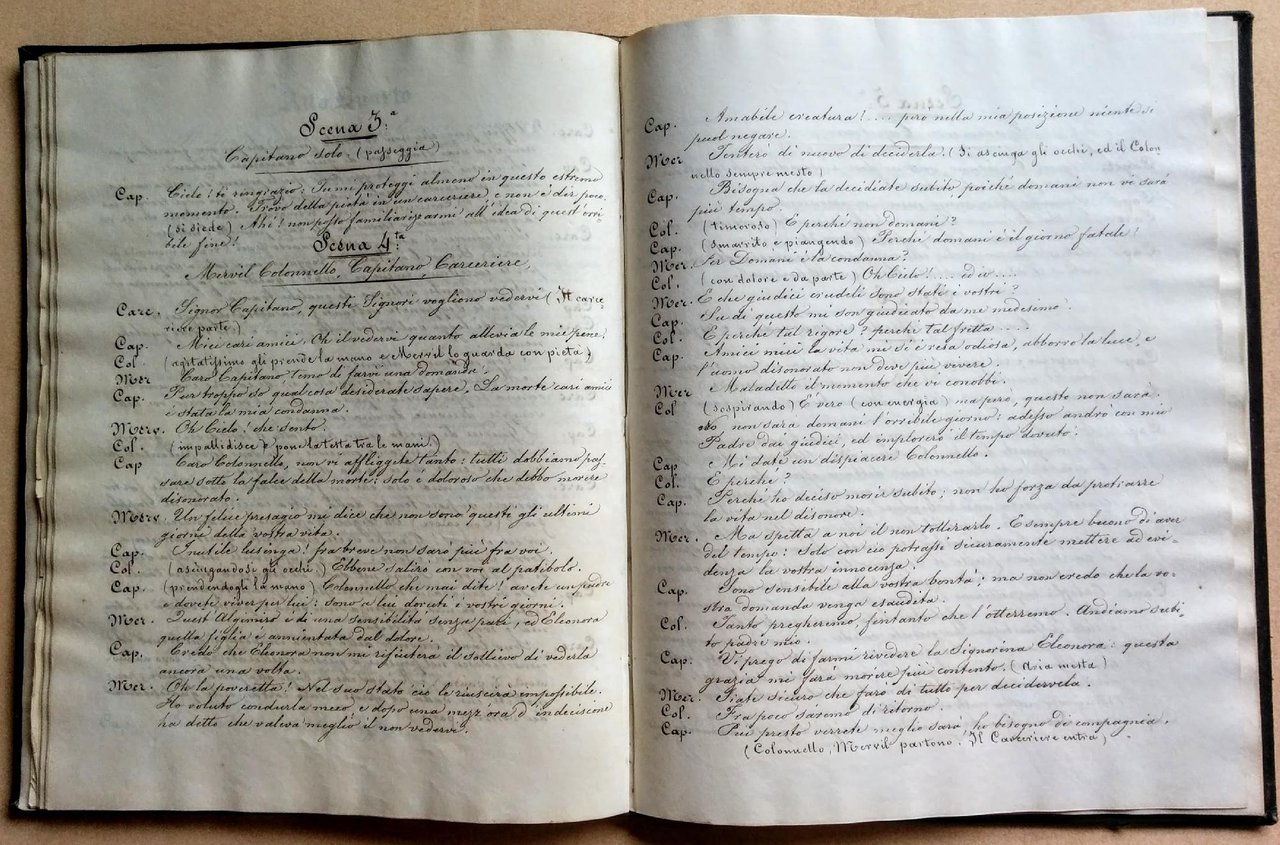 Scena 3.a
Capitano solo. (passeggia)
Cap. Cielo! ti ringrazio: Tu mi proteggi almeno in questo estremo
momento. Trovo della pietà in un carceriere, e non è dir poco.
(si siede) Ahi! non posso familiarizzarmi all'idea di quest'orri-
bile fine!
Scena 4.ta
Mervil Colonnello, Capitano, Carceriere,
Carc. Signor Capitano, questi Signori vogliono vedervi (Il carce
riere parte)
Cap. Miei cari amici. Oh il vedervi quanto allevia le mie pene.
Col (agitatissimo gli prende la mano e Mervil lo guarda con pietà)
Mer Caro Capitano temo di farvi una domanda.
Cap. Pur troppo so qual cosa desiderate sapere. La morte cari amici
è stata la mia condanna.
Merv. Oh Cielo! che sento.
Col. (impallidisce e pone la testa tra le mani)
Cap Caro Colonnello, non vi affliggete tanto: tutti dobbiamo pas-
sare sotto la falce della morte: solo è doloroso che debbo morire
disonorato.
Merv. Un felice presagio mi dice che non sono questi gli ultimi
giorni della vostra vita.
Cap. Inutile lusinga! fra breve non sarò più fra voi.
Col. (asciugandosi gli occhi.) Ebbene salirò con voi al patibolo.
Cap. (prendendogli la mano) Colonnello che mai dite! avete un padre
e dovete viver per lui: sono a lui dovuti i vostri giorni.
Mer. Quest'Algimiro è di una sensibilità senza pari, ed Eleonora
quella figlia è annientata dal dolore.
Cap. Credo che Eleonora non mi rifiuterà il sollievo di vederla
ancora una volta.
Mer. Oh la poveretta! Nel suo stato ciò le riuscirà impossibile.
Ho voluto condurla meco e dopo una mezz'ora d'indecisione
ha detto che valeva meglio il non vedervi.
Cap. Amabile creatura!.... però nella mia posizione niente si
puol negare.
Mer Tenterò di nuovo di deciderla. (Si asciuga gli occhi, ed il Colon
nello sempre mesto)
Cap. Bisogna che la decidiate subito, poiché domani non vi sarà
più tempo.
Col. (timoroso) E perché non domani?
Cap. (smarrito e piangendo) Perché domani è il giorno fatale!
Mer. Per Domani è la condanna?
Col. (con dolore e da parte) Oh Cielo!.... ed io....
Mer. E che giudici crudeli sono stati i vostri?
Cap. Su di questo mi son giudicato da me medesimo.
Col. E perché tal rigore? perché tal fretta....
Cap. Amici miei la vita mi si è resa odiosa, abborro la luce, e
l'uomo disonorato non deve più vivere.
Mer Maladetto il momento che vi conobbi.
Col (sospirando) È vero (con energia) ma però, questo non sarà.
non sarà domani l'orribile giorno: adesso andrò con mio
Padre dai giudici, ed implorerò il tempo dovuto.
Cap Mi date un dispiacere Colonnello.
Col. E perché?
Cap. Perché ho deciso morir subito; non ho forza da protrarre
la vita nel disonore.
Mer. Ma spetta a noi il non tollerarlo. E sempre buono di aver
del tempo: solo con ciò potrassi sicuramente mettere ad evi-
denza la vostra innocenza.
Cap. Sono sensibile alla vostra bontà; ma non credo che la vo-
stra domanda venga esaudita.
Col. Tanto pregheremo, fintanto che l'otterremo. Andiamo subi-
to padre mio.
Cap. Vi prego di farmi rivedere la Signorina Eleonora: questa
grazia mi farà morire più contento. (Aria mesta)
Mer. Siate sicuro che farò di tutto per decidervela.
Col. Fra poco saremo di ritorno.
Cap. Più presto verrete meglio sarà, ho bisogno di compagnia.
(Colonnello, Mervil partono. Il Carceriere entra)